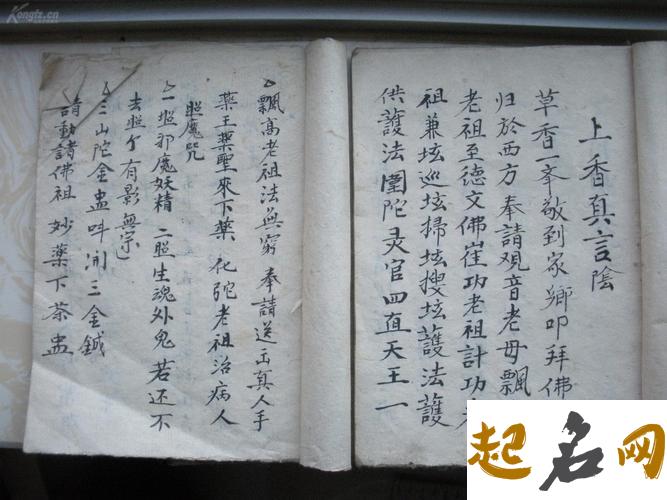 上香真言陰
草香一夲敬到家鄉叩拜佛
归於西方奉請观音老母飄
老祖至德文佛崔功老祖計功
祖兼坛巡坛掃坛搜坛護法護
供護法圍陀灵官四直天王一
飄高老祖法無窮 奉請送玉真人手
藥王藥聖來下藥 化鴕老祖治病人
照魔咒
一照邪魔妖精 二照生魂外鬼 若还不
去照尔有影無宗
三山陀金盅叫開三金鍼
請動諸佛祖 妙藥下茶盅
Kongfz.cn
起名网